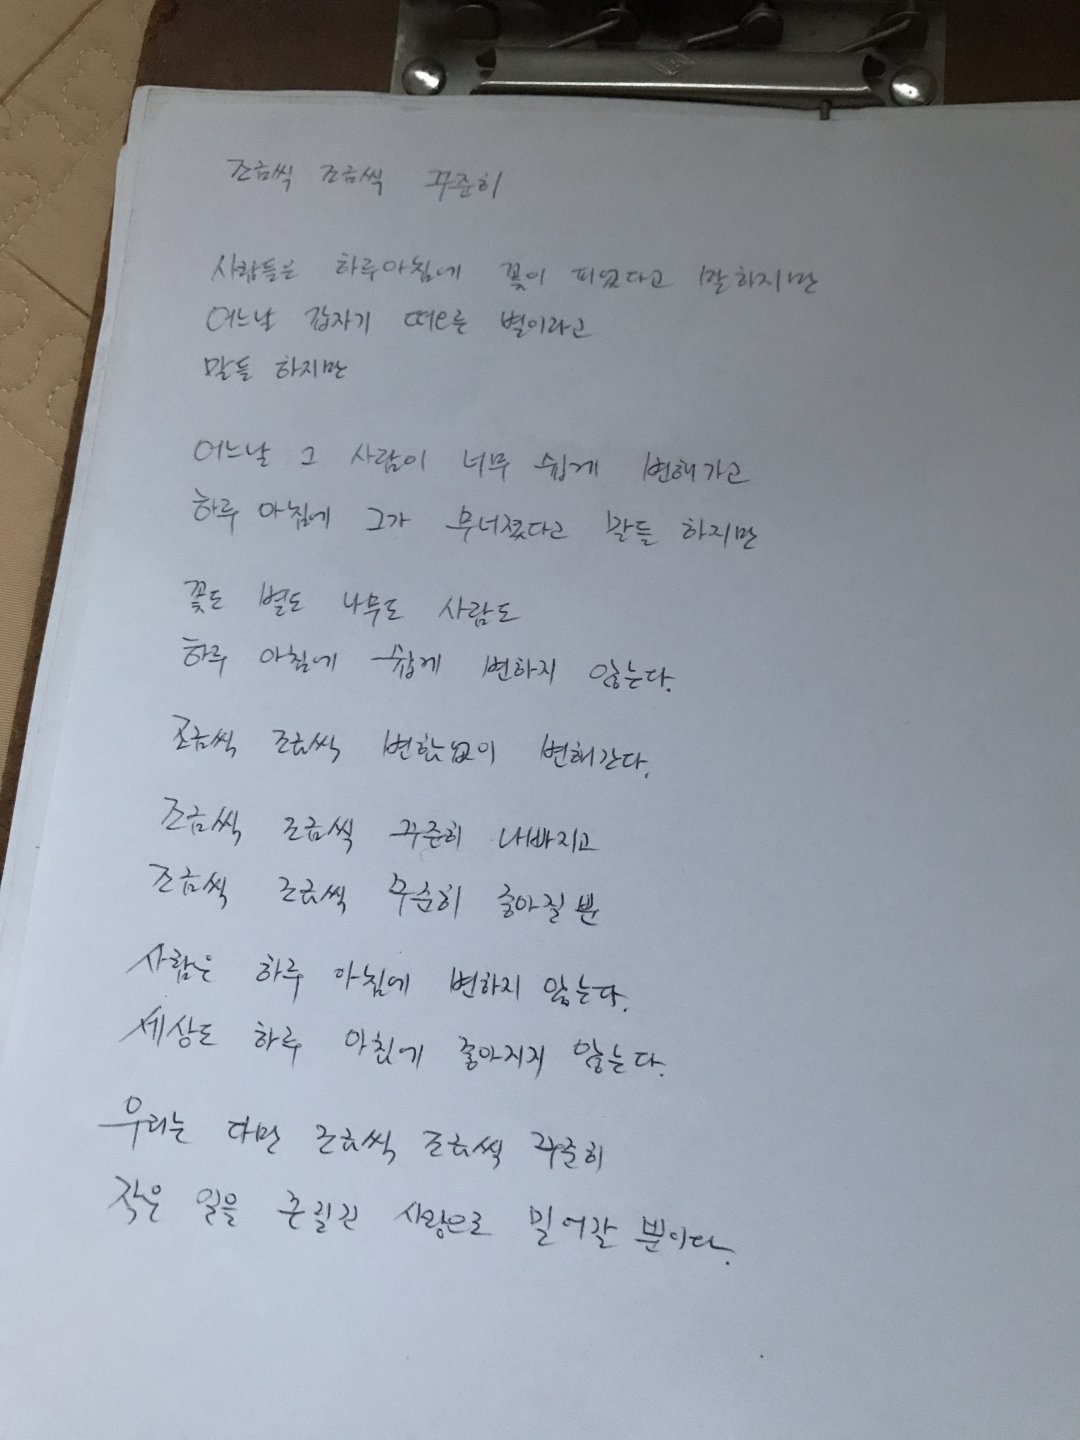 조금씩 조금씩 꾸준히
사람들은 하루아침에 꽃이 피었다고 말하지만
어느날 갑자기 떠오른 별이라고
말들 하지만
어느날 그 사람이 너무 쉽게 변해가고
하루 아침에 그가 무너졌다고 말들 하지만
꽃도 별도 나무도 사람도
하루 아침에 쉽게 변하지 않는다.
조금씩 조금씩 변함없이 변해간다.
조금씩 조금씩 꾸준히 나빠지고
조금씩 조금씩 꾸준히 좋아질 뿐
사람은 하루 아침에 변하지 않는다.
세상도 하루 아침에 좋아지지 않는다.
우리는 다만 조금씩 조금씩 꾸준히
작은 일을 끈질긴 사랑으로 밀어갈 뿐이다.